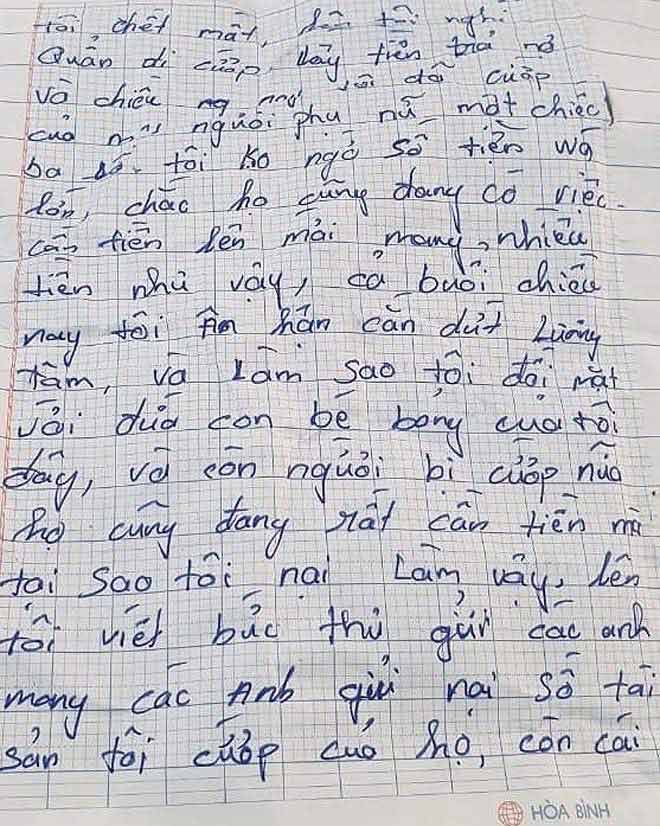 tôi, chết mất, nghĩ
Quẩn đi cướp lấy tiền trả nợ
Và chiều nay tôi đã cướp
của người phụ nữ một chiếc
ba tôi ko ngờ số tiền wá
lớn, chắc họ cũng đang có việc
cần tiền lên mới mang nhiều
tiền như vậy, cả buổi chiều
nay tôi Ân hận cắn dứt Lương
tâm, và Làm sao tôi đối mặt
với đứa con bé bỏng của tôi
đây, và còn người bị cướp nữa
họ cũng đang rất cần tiền mà
tại sao tôi nại Làm vậy, lên
tôi viết bức thư gửi các anh
mong các Anh gửi nại số tài
sản tôi cướp của họ, còn cái
HÒA BÌNH